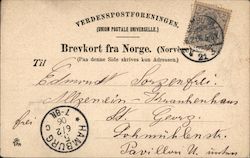 VERDENSPOSTFORENINGEN.
(UNION POSTALE UNIVERSELLE.)
Brevkort fra Norge. (Norvège)
(Paa denne Side skrives kun Adressen.)
Til
Edmund Sorgenfrei
Allgemein-Krankenhaus
St. Georg.
Lohmühlenstr.
Pavillon U
HAMBURG